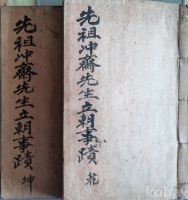 先祖冲齋先生立朝事蹟 乾
先祖冲齋先生立朝事蹟 坤
kobay